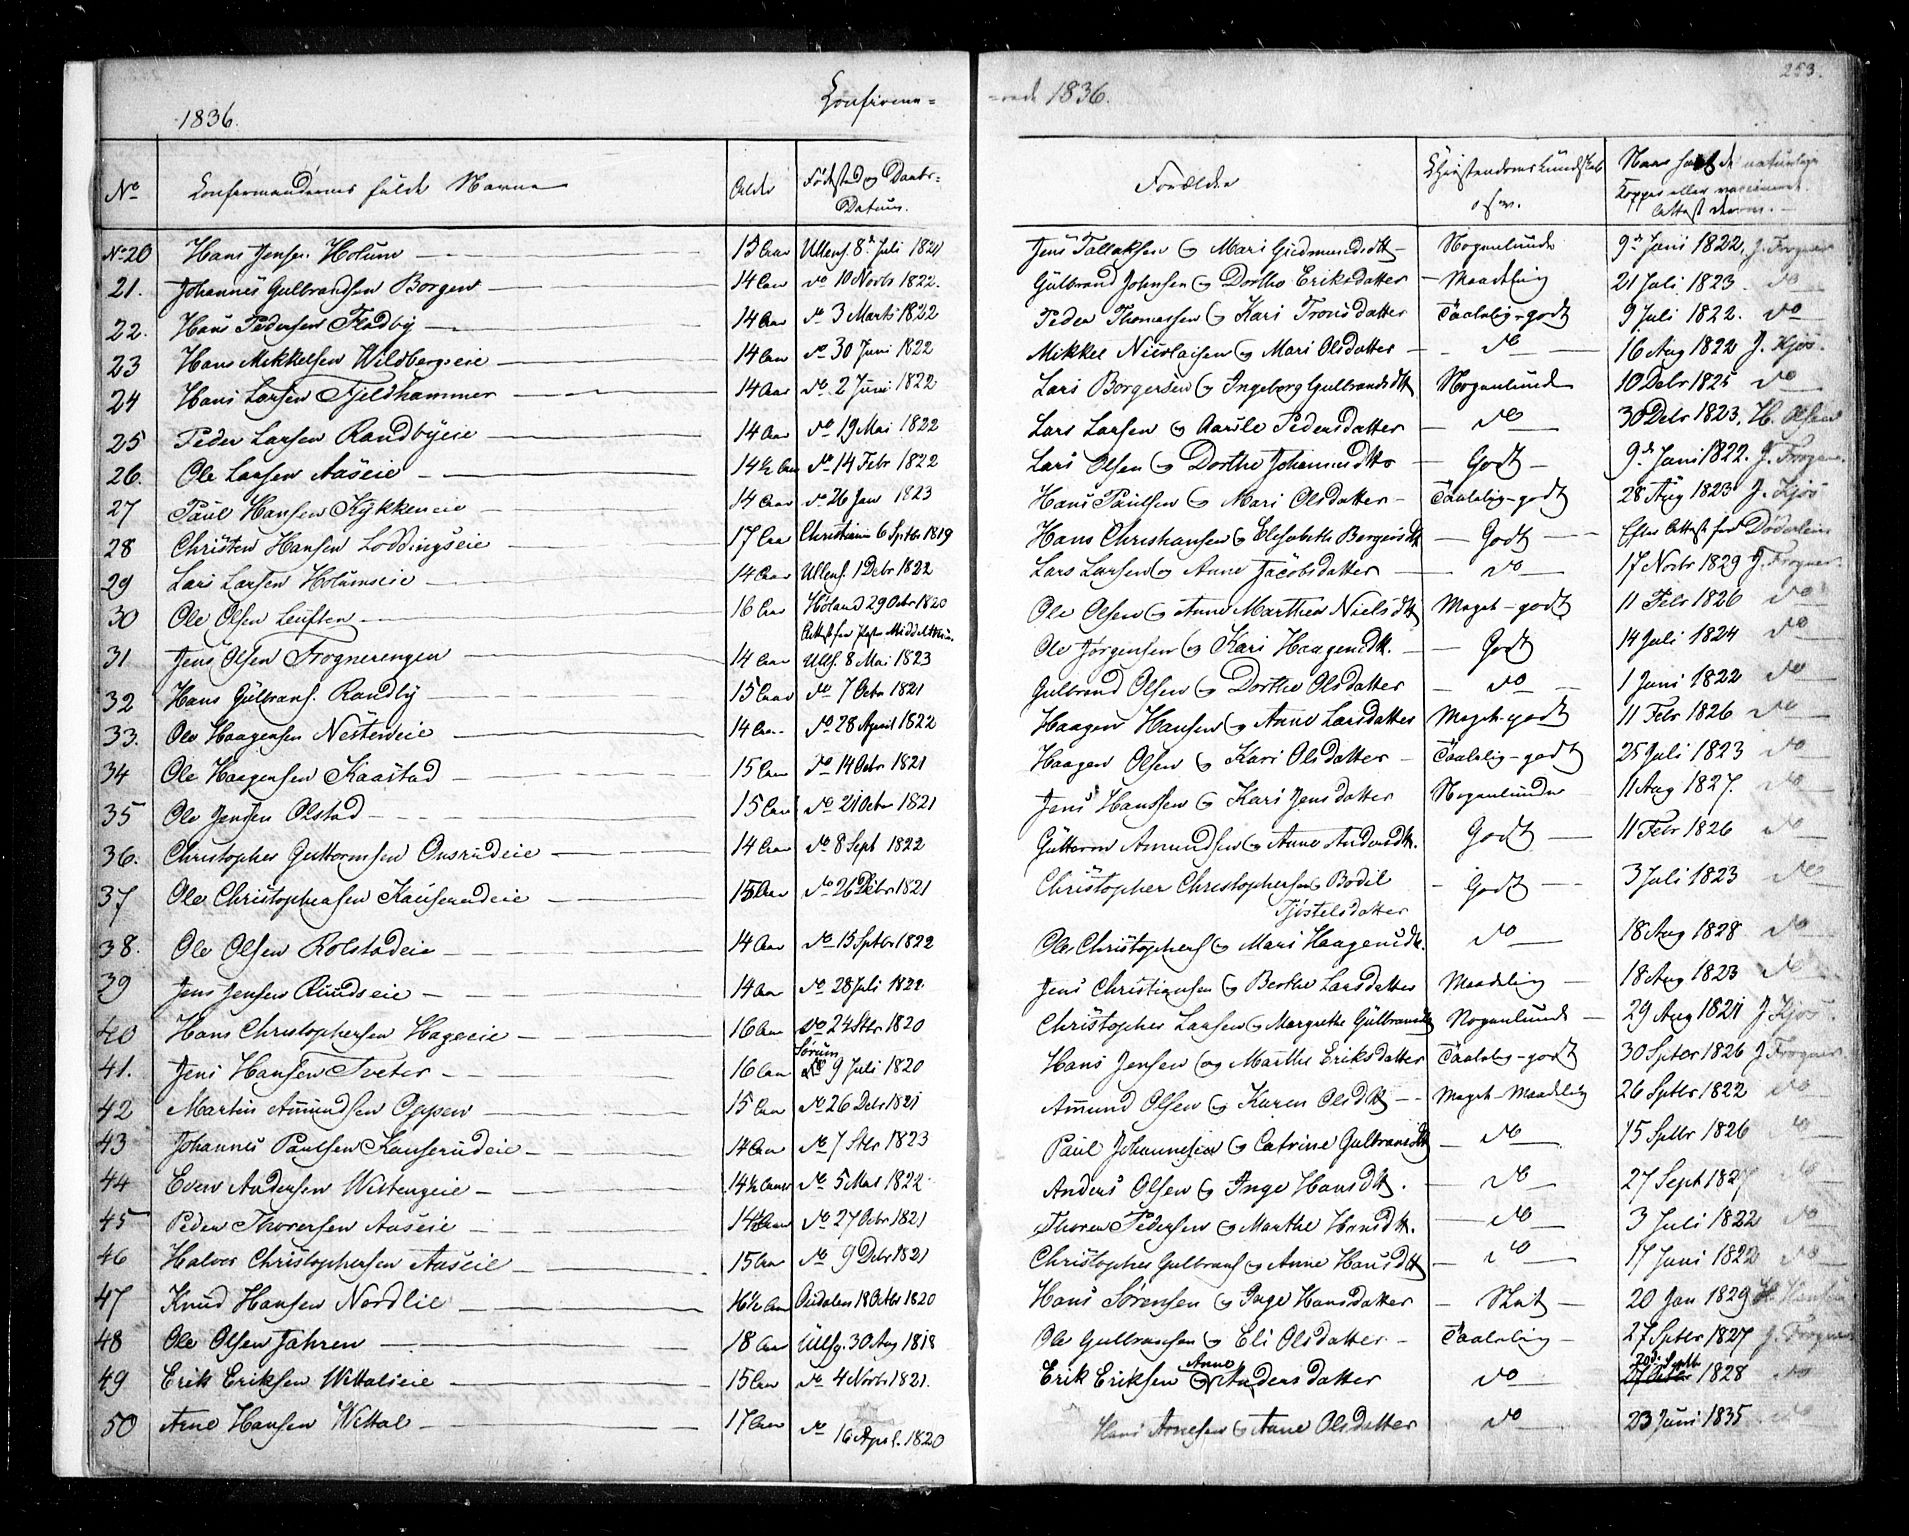 253.
1836. Confirme=
=rede 1836.
No Confirmandernes fulde Navne Alder Fødested og Daabs- Forældre Christendoms Kundskab Naar havt de naturlige
Datum. osv. Kopper eller vaccineret.
Attest derom.
No 20 Hans Jensen Holum 15 Aar Ullens. 8de Juli 1821 Jens Tallaksen og Mari Gudmundsdtt Nogenlunde 9de Juni 1822. J. Frogner
21. Johannes Gulbrandsen Borgen 14 Aar do 10 Novbr 1822. Gulbrand Johnsen og Dorthe Eriksdatter Maadelig 21 Juli 1823. do
22. Hans Pedersen Fladby 14 Aar do 3 Marts 1822 Peder Thomassen og Kari Tronsdatter Taalelig-godt 9 Juli 1822. do
23 Hans Mikkelsen Wildbergseie 14 Aar do 30 Juni 1822 Mikkel Nicolaisen og Mari Olsdatter do 16 Aug 1822 J. Kjøs.
24 Hans Larsen Fjeldhammer 14 Aar do 2 Juni 1822 Lars Borgersen og Ingeborg Gulbrandsdtt Nogenlunde 10 Debr 1825 do
25 Peder Larsen Randbyeie 14 Aar do 19 Mai 1822 Lars Larsen og Aasile Pedersdatter do 30 Debr 1823. H. Olsen
26. Ole Larsen Aaseie 14½ Aar do 14 Febr 1822 Lars Olsen og Dorthe Johannesdttr Godt 9de Juni 1822. J. Frogner.
27 Paul Hansen Kykkeneie 14 Aar do 26 Jan 1823 Hans Paulsen og Mari Olsdatter Taalelig-godt 28 Aug 1823 J. Kjøs
28 Christen Hansen Loddingseie 17 Aar Christiania 6 Septbr 1819 Hans Christiansen og Elisabeth Borgersdtt Godt Efter Attest fra Döderlein
29 Lars Larsen Holumseie 14 Aar Ullens. 1 Debr 1822 Lars Larsen og Anne Jacobsdatter do 17 Novbr 1829 J. Frogner.
30 Ole Olsen Leuften 16 Aar Höland 29 Octbr 1820 Ole Olsen og Anne Marthea Nielsdtt Meget-godt 11 Febr 1826 do
31 Jens Olsen Frognerengen 14 Aar Ulls. 8 Mai 1823 Ole Jörgensen og Kari Haagensdtt. Godt 14 Juli 1824 do
32 Hans Gulbrans. Randby 15 Aar do 7 Octbr 1821 Gulbrand Olsen og Dorthe Olsdatter do 1 Juni 1822 do
33. Ole Haagensen Nesteneie 14 Aar do 28 April 1822 Haagen Hansen og Anne Larsdatter Meget-godt 11 Febr 1826 do
34 Ole Haagensen Kaastad 15 Aar do 14 Octbr 1821 Haagen Olsen og Kari Olsdatter Taalelig-godt 25 Juli 1823 do
35 Ole Jensen Olstad 15 Aar do 21 Octbr 1821 Jens Hansen og Kari Jensdatter Nogenlunde 11 Aug 1827. do
36. Christopher Guttormsen Onsrudeie 14 Aar do 8 Sept 1822 Guttorm Amundsen og Anne Andersdtt. Godt 11 Febr 1826 do
37 Ole Christophersen Kauserudeie 15 Aar do 26 Debr 1821 Christopher Christophersen og Bodil Godt 3 Juli 1823 do
Tjöstelsdatter
38. Ole Olsen Rolstadeie 14 Aar do 15 Septbr 1822 Ole Christophers. og Mari Haagensdtt. do 18 Aug 1828 do
39 Jens Jensen Rundseie 14 Aar do 28 Juli 1822 Jens Christiansen og Berthe Larsdatter Maadelig 18 Aug 1823 do
40 Hans Christophersen Hageeie 16 Aar do 24 Stbr 1820 Christopher Larsen og Margrethe Gulbransdtt Nogenlunde 29 Aug 1821 J. Kjøs.
Sørum
41. Jens Hansen Tveter 16 Aar do 9 Juli 1820 Hans Jensen og Marthe Eriksdatter Taalelig-godt 30 Septbr 1826 J. Frogner
42 Martin Amundsen Oppen 15 Aar do 26 Debr 1821 Amund Olsen og Karen Olsdtt Meget-Maadelig 26 Septbr 1822 do
43 Johannes Paulsen Kauserudeie 14 Aar do 7 Stbr 1823 Paul Johannesen og Catrine Gulbransdtt do 15 Septbr 1826 do
44 Even Andersen Westengeie 14½ Aar do 5 Mai 1822 Anders Olsen og Inge Hansdtt. do 27 Sept 1827 do
45 Peder Thoresen Aaseie 14½ Aar do 27 Octbr 1821 Thoren Pedersen og Marthe Hansdtt. do 3 Juli 1822 do
46 Halvor Christophersen Aaseie 15 Aar do 9 Debr 1821 Christopher Gulbrans. og Anne Hansdtt do 17 Juni 1822 do
47 Knud Hansen Nordlie 16½ Aar Øidalen 18 Octbr 1820 Hans Sörensen og Inge Hansdatter Slet 20 Jan 1829 H. Hansen
48 Ole Olsen Jahren 18 Aar Ullsg. 30 Aug 1818 Ole Gulbransen og Eli Olsdatter Taalelig 27 Septbr 1827 J. Frogner
Anne 20de Septbr
49 Erik Eriksen Wittalseie 15 Aar do 4 Novbr 1821. Erik Eriksen og Andersdatter do 1828 do
50 Arne Hansen Wittal 17 Aar do 16 April. 1820 Hans Arnesen og Anne Olsdatter do 23 Juni 1835 do